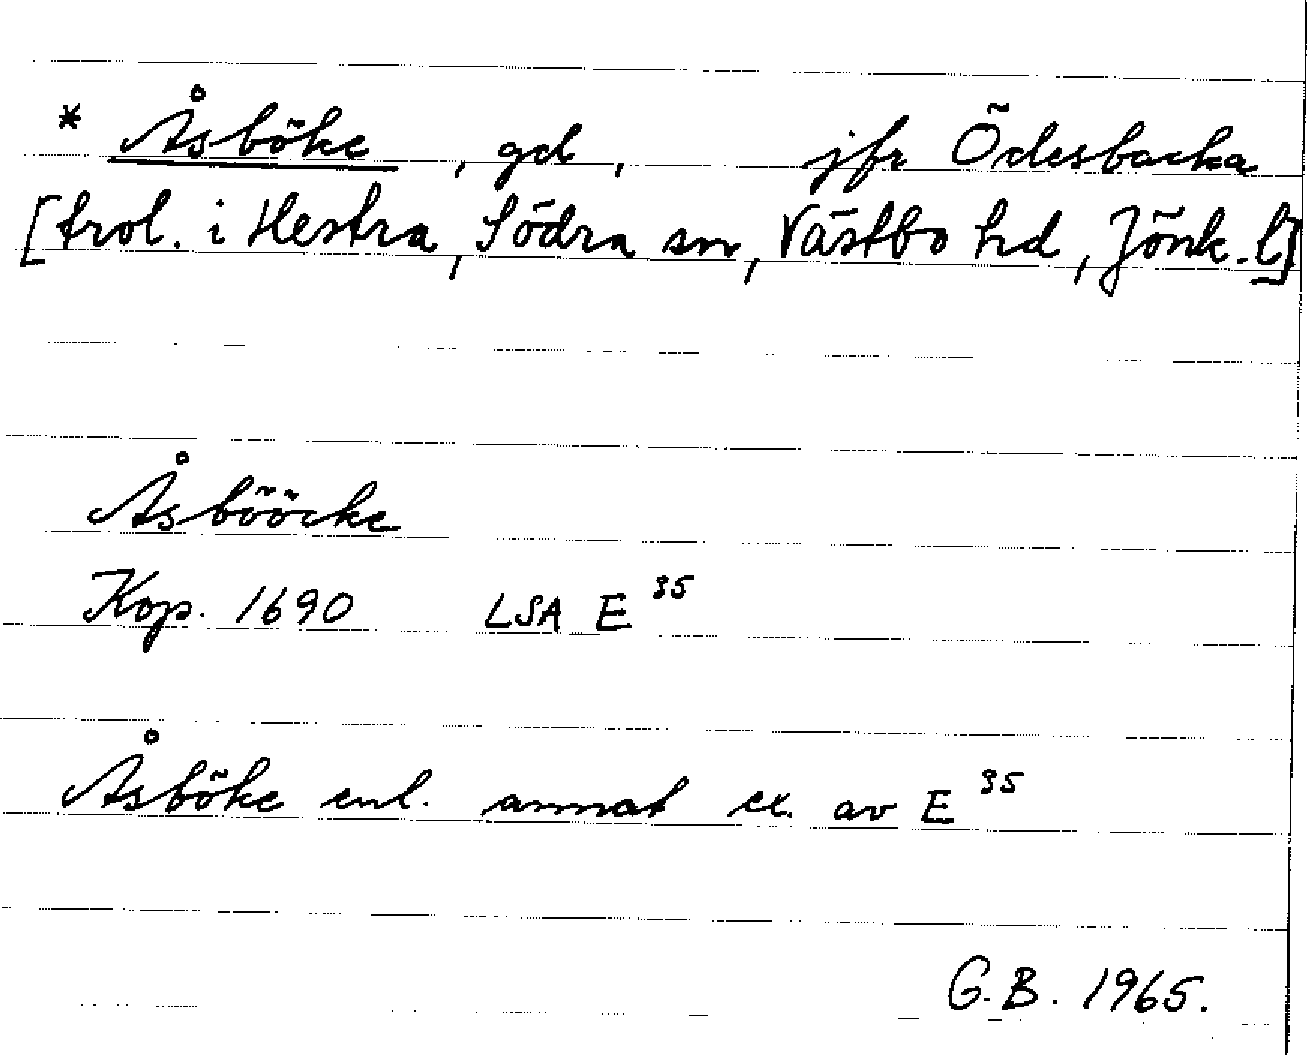 * Åsböke, gd, jfr Ödesbacka
[trol. i Hestra, Södra sn, Västbo hd, Jönk. l]
Åsbööcke
Kop. 1690 LSA E 35
Åsböke enl. annat ex. av E 35
G.B. 1965.